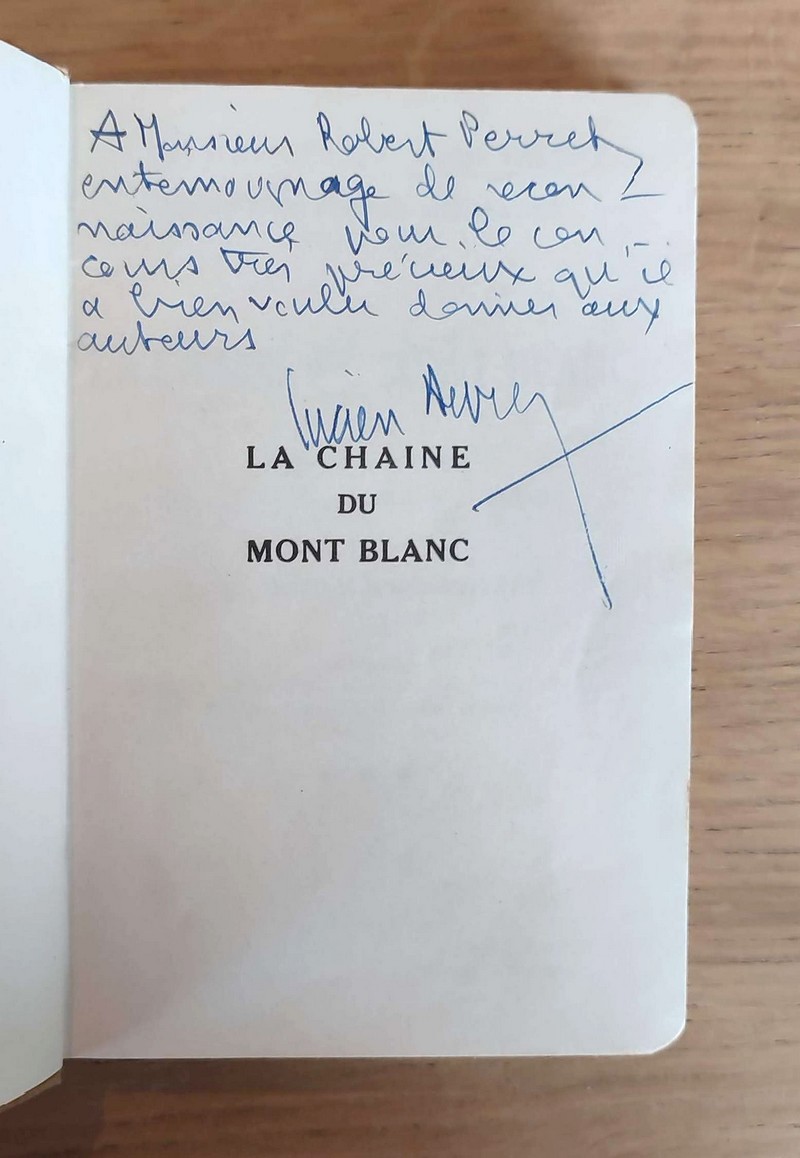 A Monsieur Robert Perret
en temoignage de recon-
naissance pour le con-
cours très précieux qu'il
a bien voulu donner aux
auteurs
Lucien Devies
LA CHAINE
DU
MONT BLANC